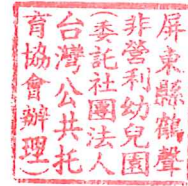 屏東縣鶴聲
非營利幼兒園
（委託社團法人
台灣公共托
育協會辦理）